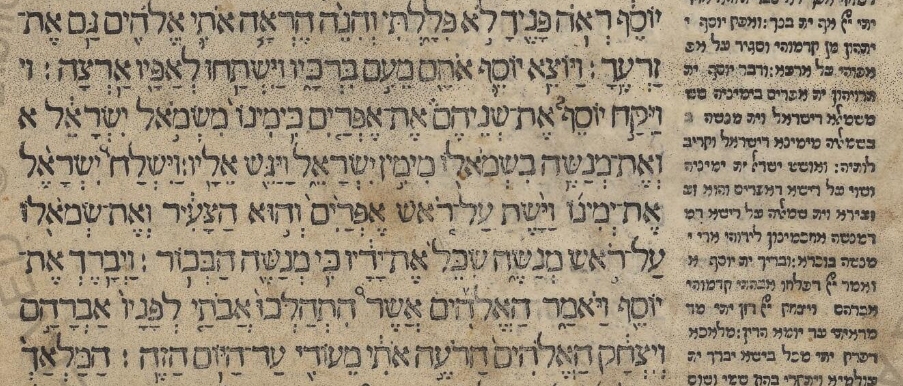 יוֹסֵף רְאֹה פָנֶיךָ לֹא פִלָּלְתִּי וְהִנֵּה הֶרְאָה אֹתִי אֱלֹהִים גַּם אֶת־
זַרְעֶךָ : וַיּוֹצֵא יוֹסֵף אֹתָם מֵעִם בִּרְכָּיו וַיִּשְׁתַּחוּ לְאַפָּיו אָרְצָה : וי
וַיִּקַּח יוֹסֵף אֶת־שְׁנֵיהֶם אֶת־אֶפְרַיִם בִּימִינוֹ מִשְּׂמֹאל יִשְׂרָאֵל א
וְאֶת־מְנַשֶּׁה בִשְׂמֹאלוֹ מִימִין יִשְׂרָאֵל וַיַּגֵּשׁ אֵלָיו : וַיִּשְׁלַח יִשְׂרָאֵל
אֶת־יְמִינוֹ וַיָּשֶׁת עַל־רֹאשׁ אֶפְרַיִם וְהוּא הַצָּעִיר וְאֶת־שְׂמֹאלוֹ
עַל־רֹאשׁ מְנַשֶּׁה שִׂכֵּל אֶת־יָדָיו כִּי מְנַשֶּׁה הַבְּכוֹר : וַיְבָרֶךְ אֶת־
יוֹסֵף וַיֹּאמַר הָאֱלֹהִים אֲשֶׁר הִתְהַלְּכוּ אֲבֹתַי לְפָנָיו אַבְרָהָם
וְיִצְחָק הָאֱלֹהִים הָרֹעֶה אֹתִי מֵעוֹדִי עַד־הַיּוֹם הַזֶּה : הַמַּלְאָךְ
אף ית בנך : ואפיק יוסף י
יתהון מן קדמוהי וסגיד על אפ
אפוהי על ארעא : ודבר יוסף ית
תרויהון ית אפרים בימיניה מש
משמאלא דישראל וית מנשה ב
בשמאליה מימינא דישראל וקריב
לותיה : ואושט ישראל ית ימיניה
ושוי על רישא דאפרים והוא זע
זעירא וית שמאליה על רישא דמ
דמנשה אחכמינון לידוהי ארי י
מנשה בוכרא : ובריך ית יוסף וא
ואמר ייי דפלחו אבהתי קדמוהי
אברהם ויצחק ייי דזן יתי מד
מדאיתי עד יומא הדין : מלאכא
דפרק יתי מכל בישא יברך ית
עולמיא ויתקרי בהון שמי ושום